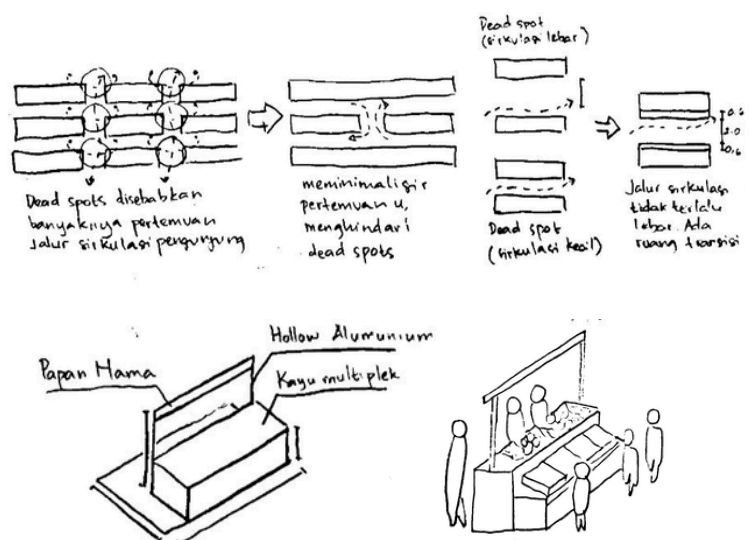 Dead spots disebabkan
banyaknya pertemuan
Jalur sirkulasi pengunjung
meminimalisir
pertemuan u,
menghindari
dead spots
Dead spot
(sirkulasi lebar)
Dead spot
(sirkulasi kecil)
0.6
2.0
0.6
Jalur sirkulasi
tidak terlalu
lebar. Ada
ruang transisi
Papan Nama
Hollow Alumunium
Kayu multiplek